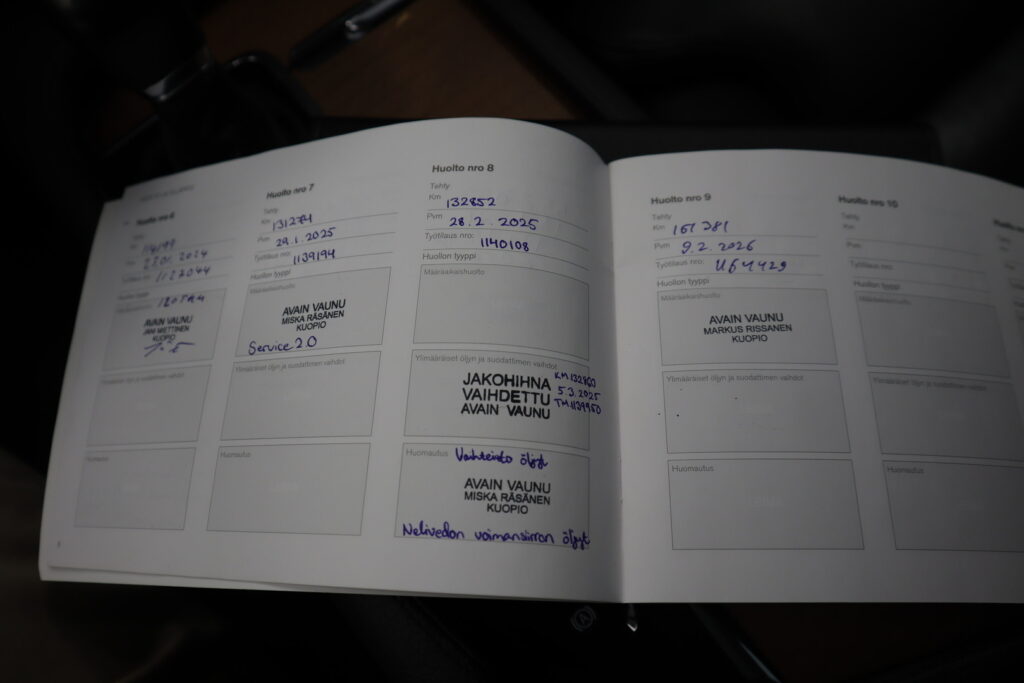 Huolto nro 6
114199
1122044
AVAIN VAUNU
JANI MIETTINEN
KUOPIO
Ylimääräiset öljyn ja suodattimen vaihdot
Huomautus
Huolto nro 7
Tehty
Km 131274
Pvm 29.1.2025
Työtilaus nro: 1139194
Huollon tyyppi
Määräaikaishuolto
AVAIN VAUNU
MISKA RÄSÄNEN
KUOPIO
Service 2.0
Ylimääräiset öljyn ja suodattimen vaihdot
Huomautus
Huolto nro 8
Tehty
Km 132852
Pvm 28.2.2025
Työtilaus nro: 1140108
Huollon tyyppi
Määräaikaishuolto
Ylimääräiset öljyn ja suodattimen vaihdot
JAKOHIHNA
VAIHDETTU
AVAIN VAUNU
KM 132860
5.3.2025
TM.1139950
Huomautus Vaihteisto öljyt
AVAIN VAUNU
MISKA RÄSÄNEN
KUOPIO
Nelivedon voimansiirron öljyt
Huolto nro 9
Tehty
Km 151381
Pvm 9.2.2026
Työtilaus nro:
Huollon tyyppi
Määräaikaishuolto
AVAIN VAUNU
MARKUS RISSANEN
KUOPIO
Ylimääräiset öljyn ja suodattimen vaihdot
Huomautus
Huolto nro 10
Tehty
Km
Pvm
Työtilaus nro:
Huollon tyyppi
Määräaikaishuolto
Ylimääräiset öljyn ja suodattimen vaihdot
Huomautus